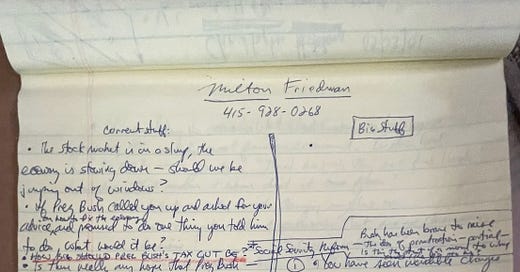 Milton Friedman
415-928-0268
current stuff:
• The stock market is in a slump, the
economy is slowing down — should we be
jumping out of windows?
• If Pres Bush called you up and asked for your
on how to fix the economy
advice and promised to do one thing you told him
to do, what would it be?
• HOW BIG SHOULD PRES BUSH'S TAX CUT BE?
• Is there really any hope that Pres Bush —
Big Stuff
Bush has been brave to raise
— The idea of privatization — partial —
* Social Security Reform —
① • You have seen incredible changes